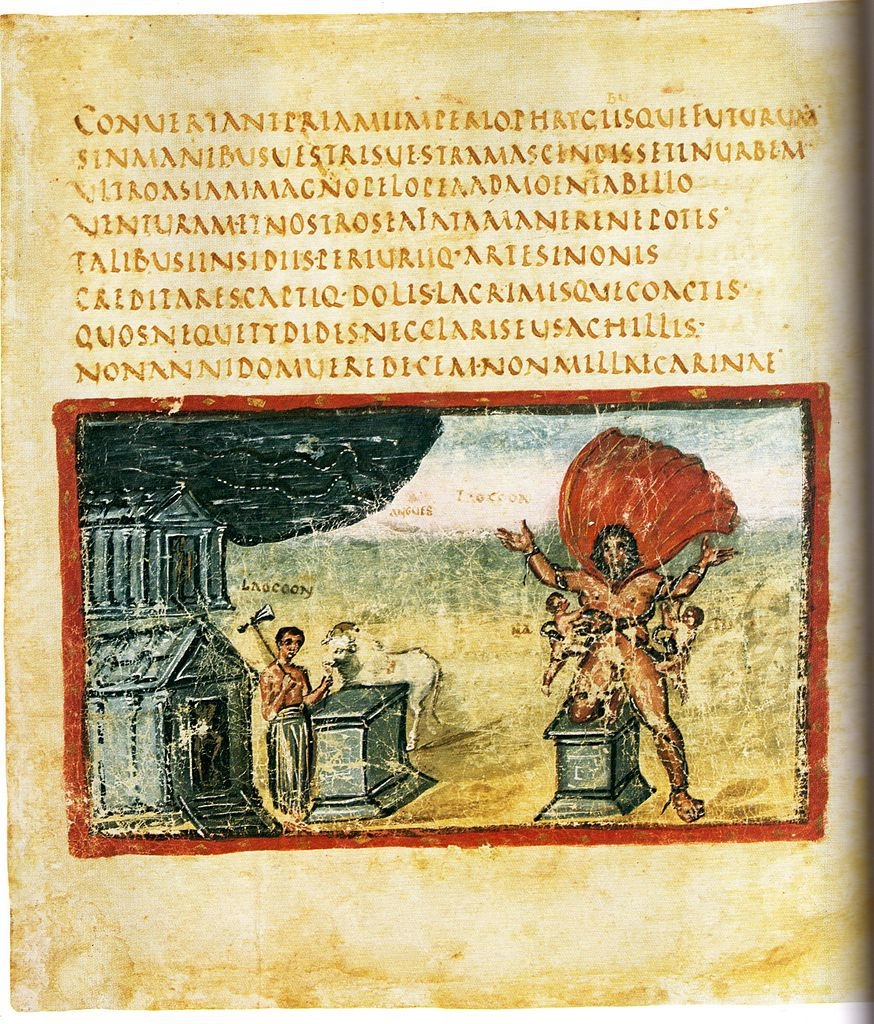 BU
CONUERTANTPRIAMIIMPERIOPHRYGISQUEFUTURUM
SINMANIBUSUESTRISUESTRAMASCENDISSETINURBEM
ULTROASIAMMAGNOPELOPEAADMOENIABELLO
UENTURAMETNOSTROSEAFATAMANERENEPOTES
TALIBUSINSIDIIS·PERIURIIQ·ARTESINONIS
CREDITARES·CAPTIQ·DOLIS·LACRIMISQUECOACTIS·
QUOSNEQUETYDIDESNECCLARISEUSACHILLIS·
NONANNIDOMUEREDECEM·NONMILLAECARINAE·
LAOCOON
ANGUES
LAOCOON
NA